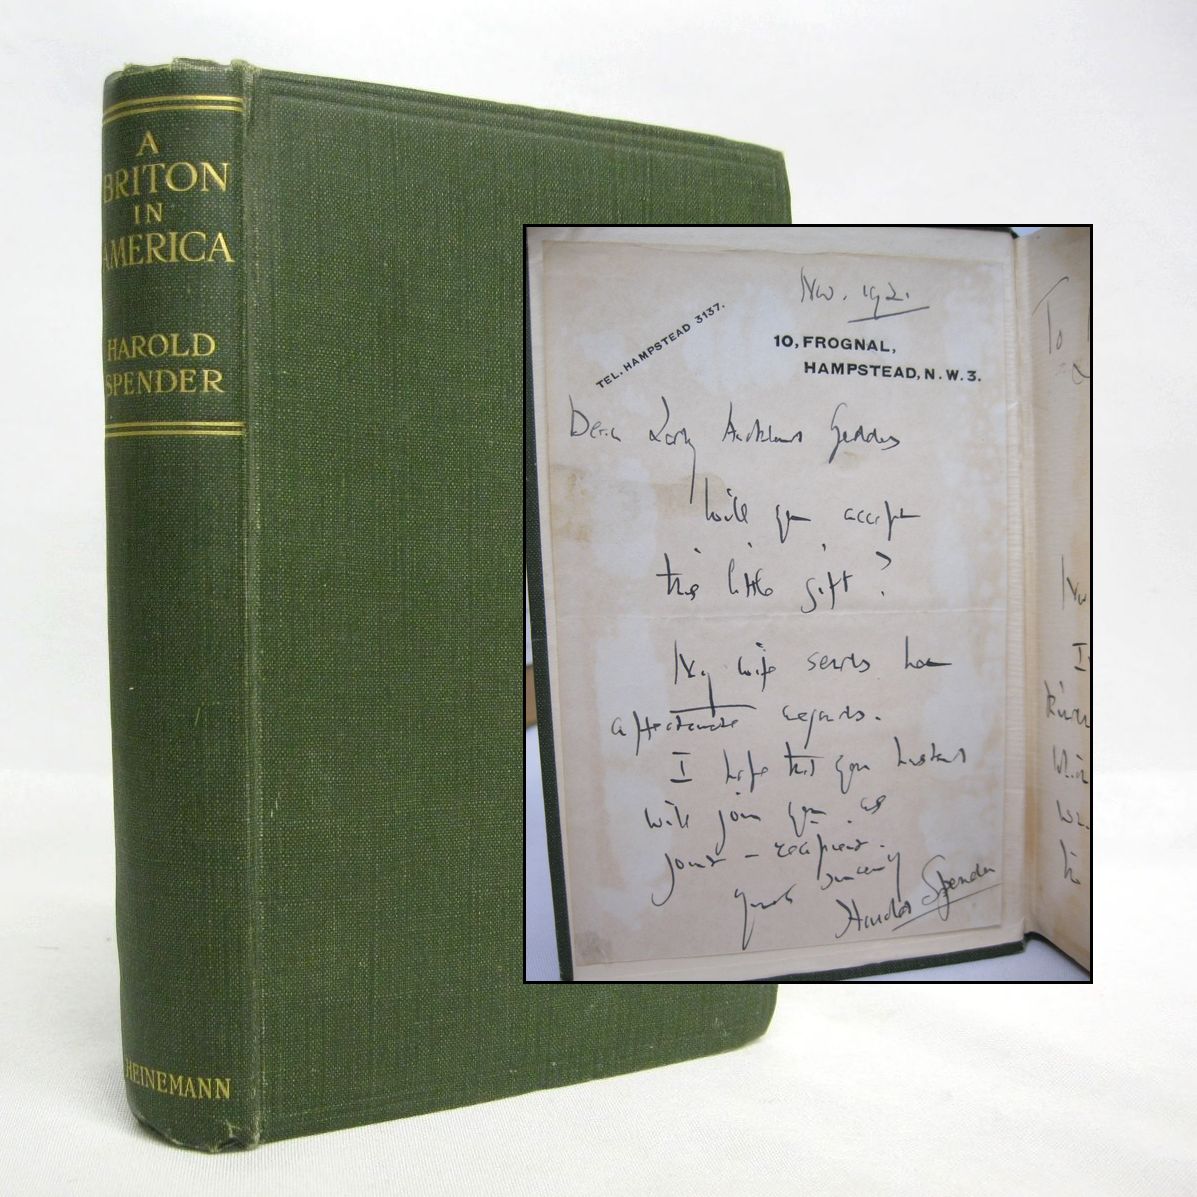 A
BRITON
IN
AMERICA
HAROLD
SPENDER
HEINEMANN
Nov. 1921
TEL. HAMPSTEAD 3137.
10, FROGNAL,
HAMPSTEAD, N.W.3.
Dear Lady Auckland Geddes
Will you accept
this little gift?
My wife sends her
affectionate regards.
I hope that your husband
will join you as
joint-recipient.
yours sincerely
Harold Spender
To
I